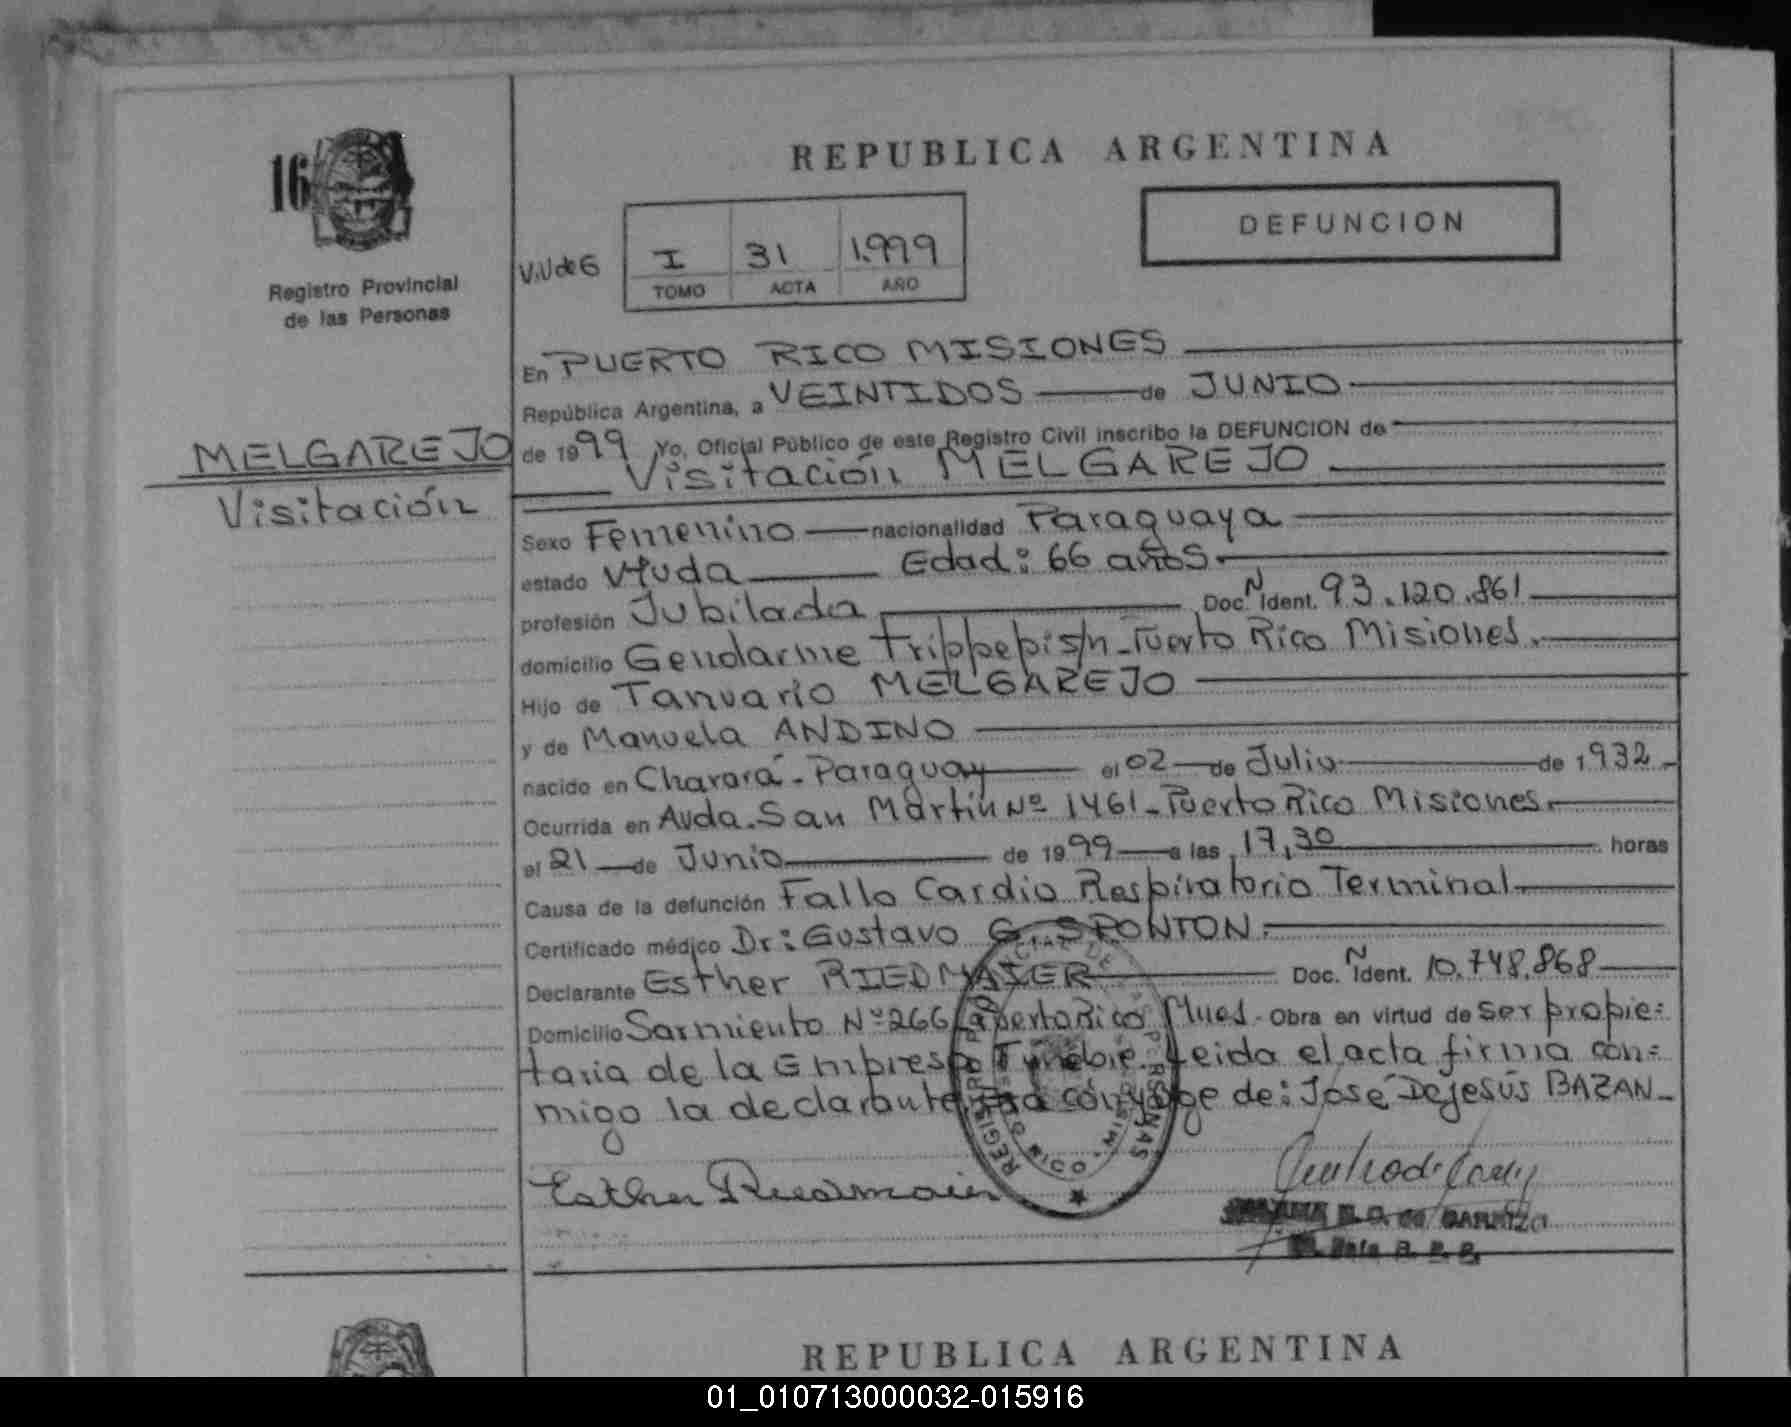 REPUBLICA ARGENTINA
16
DEFUNCION
V.V de G
I 31 1.999
TOMO ACTA AÑO
Registro Provincial
de las Personas
En PUERTO RICO MISIONES
República Argentina, a VEINTIDOS de JUNIO
MELGAREJO
Visitación
de 1999 Yo, Oficial Público de este Registro Civil inscribo la DEFUNCION de
Visitación MELGAREJO
Sexo Femenino nacionalidad Paraguaya
estado Viuda Edad: 66 años
profesión Jubilada Doc. N Ident. 93.120.861
domicilio Gendarme Trippepi s/n - Puerto Rico Misiones.
Hijo de Januario MELGAREJO
y de Manuela ANDINO
nacido en Charará - Paraguay el 02 de Julio de 1932
Ocurrida en Avda. San Martín Nº 1461 - Puerto Rico Misiones.
el 21 de Junio de 1999 a las 17,30 horas
Causa de la defunción Fallo Cardio Respiratorio Terminal
Certificado médico Dr: Gustavo G. SPONTON.
Declarante Esther RIEDMAIER Doc. N Ident. 10.748.868
Domicilio Sarmiento Nº 266 Puerto Rico Mnes. Obra en virtud de ser propie=
taria de la Empresa Fúnebre. Leida el acta firma con=
migo la declarante. Era cónyuge de: José DeJesús BAZAN
Esther Riedmaier
REPUBLICA ARGENTINA
01_010713000032-015916